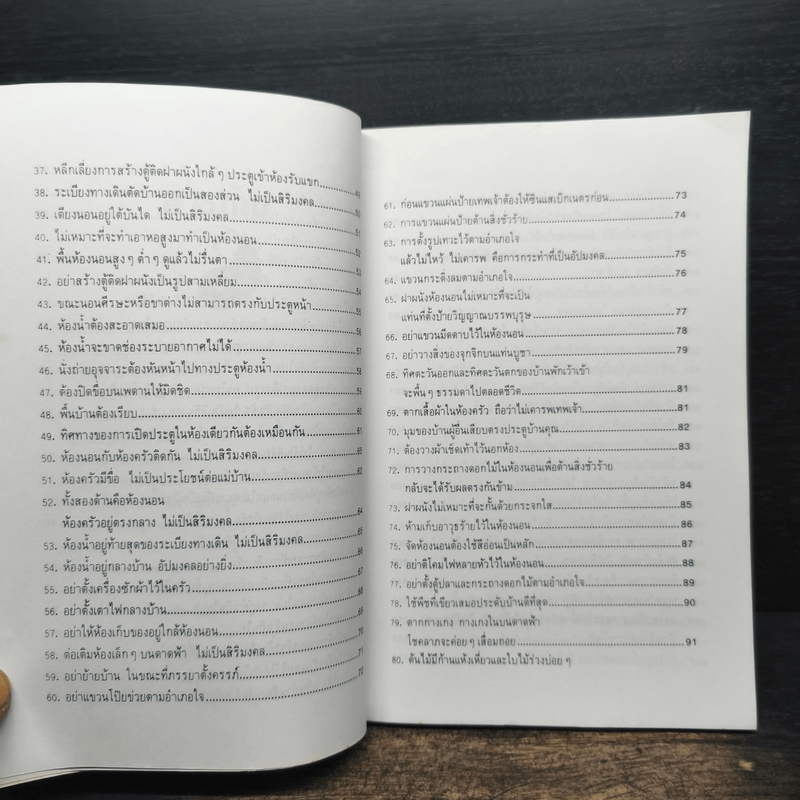 37. หลีกเลี่ยงการสร้างตู้ติดฝาผนังใกล้ๆ ประตูเข้าห้องรับแขก
38. ระเบียงทางเดินตัดบ้านออกเป็นสองส่วน ไม่เป็นสิริมงคล
39. เตียงนอนอยู่ใต้บันได ไม่เป็นสิริมงคล
40. ไม่เหมาะที่จะทำเอาหอสูงมาทำเป็นห้องนอน
41. พื้นห้องนอนสูงๆ ต่ำๆ ดูแล้วไม่รื่นตา
42. อย่าสร้างตู้ติดฝาผนังเป็นรูปสามเหลี่ยม
43. ขณะนอนศีรษะหรือขาต่างไม่สามารถตรงกับประตูหน้า
44. ห้องน้ำต้องสะอาดเสมอ
45. ห้องน้ำจะขาดช่องระบายอากาศไม่ได้
46. นั่งถ่ายอุจจาระต้องหันหน้าไปทางประตูห้องน้ำ
47. ต้องปิดขื่อบนเพดานให้มิดชิด
48. พื้นบ้านต้องเรียบ
49. ทิศทางของการเปิดประตูในห้องเดียวกันต้องเหมือนกัน
50. ห้องนอนกับห้องครัวติดกัน ไม่เป็นสิริมงคล
51. ห้องครัวมีขื่อ ไม่เป็นประโยชน์ต่อแม่บ้าน
52. ทั้งสองด้านคือห้องนอน
ห้องครัวอยู่ตรงกลาง ไม่เป็นสิริมงคล
53. ห้องน้ำอยู่ท้ายสุดของระเบียงทางเดิน ไม่เป็นสิริมงคล
54. ห้องน้ำอยู่กลางบ้าน อัปมงคลอย่างยิ่ง
55. อย่าตั้งเครื่องซักผ้าไว้ในครัว
56. อย่าตั้งเตาไฟกลางบ้าน
57. อย่าให้ห้องเก็บของอยู่ใกล้ห้องนอน
58. ต่อเติมห้องเล็กๆ บนดาดฟ้า ไม่เป็นสิริมงคล
59. อย่าย้ายบ้าน ในขณะที่ภรรยาตั้งครรภ์
60. อย่าแขวนโป๊ยข่วยตามอำเภอใจ
61. ก่อนแขวนแผ่นป้ายเทพเจ้าต้องให้ซินแสเบิกเนตรก่อน 73
62. การแขวนแผ่นป้ายต้านสิ่งชั่วร้าย 74
63. การตั้งรูปเทวะไว้ตามอำเภอใจ
แล้วไม่ไหว้ ไม่เคารพ คือการกระทำที่เป็นอัปมงคล 75
64. แขวนกระดิ่งลมตามอำเภอใจ 76
65. ฝาผนังห้องนอนไม่เหมาะที่จะเป็น
แท่นที่ตั้งป้ายวิญญาณบรรพบุรุษ 77
66. อย่าแขวนมีดดาบไว้ในห้องนอน 78
67. อย่าวางสิ่งของจุกจิกบนแท่นบูชา 79
68. ทิศตะวันออกและทิศตะวันตกของบ้านพักเว้าเข้า
จะพื้นๆ ธรรมดาไปตลอดชีวิต 81
69. ตากเสื้อผ้าในห้องครัว ถือว่าไม่เคารพเทพเจ้า 81
70. มุมของบ้านผู้อื่นเสียบตรงประตูบ้านคุณ 82
71. ต้องวางผ้าเช็ดเท้าไว้นอกห้อง 83
72. การวางกระถางดอกไม้ในห้องนอนเพื่อต้านสิ่งชั่วร้าย
กลับจะได้รับผลตรงกันข้าม 84
73. ฝาผนังไม่เหมาะที่จะกั้นด้วยกระจกใส 85
74. ห้ามเก็บอาวุธร้ายไว้ในห้องนอน 86
75. จัดห้องนอนต้องใช้สีอ่อนเป็นหลัก 87
76. อย่าติโคมไฟหลายหัวไว้ในห้องนอน 88
77. อย่าตั้งตู้ปลาและกระถางดอกไม้ตามอำเภอใจ 89
78. ใช้พืชที่เขียวเสมอประดับบ้านดีที่สุด 90
79. ตากกางเกง กางเกงในบนดาดฟ้า
โชคลาภจะค่อยๆ เสื่อมถอย 91
80. ต้นไม้มีก้านแห้งเหี่ยวและใบไม้ร่วงบ่อยๆ